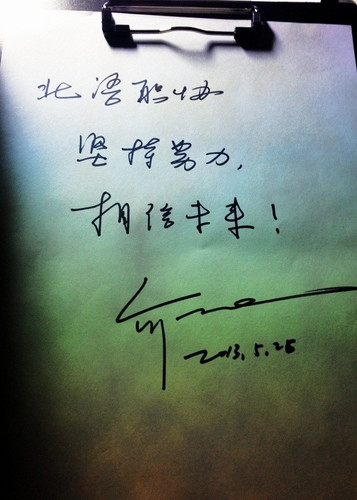 北语职协
坚持努力，
相信未来！
2013.5.25